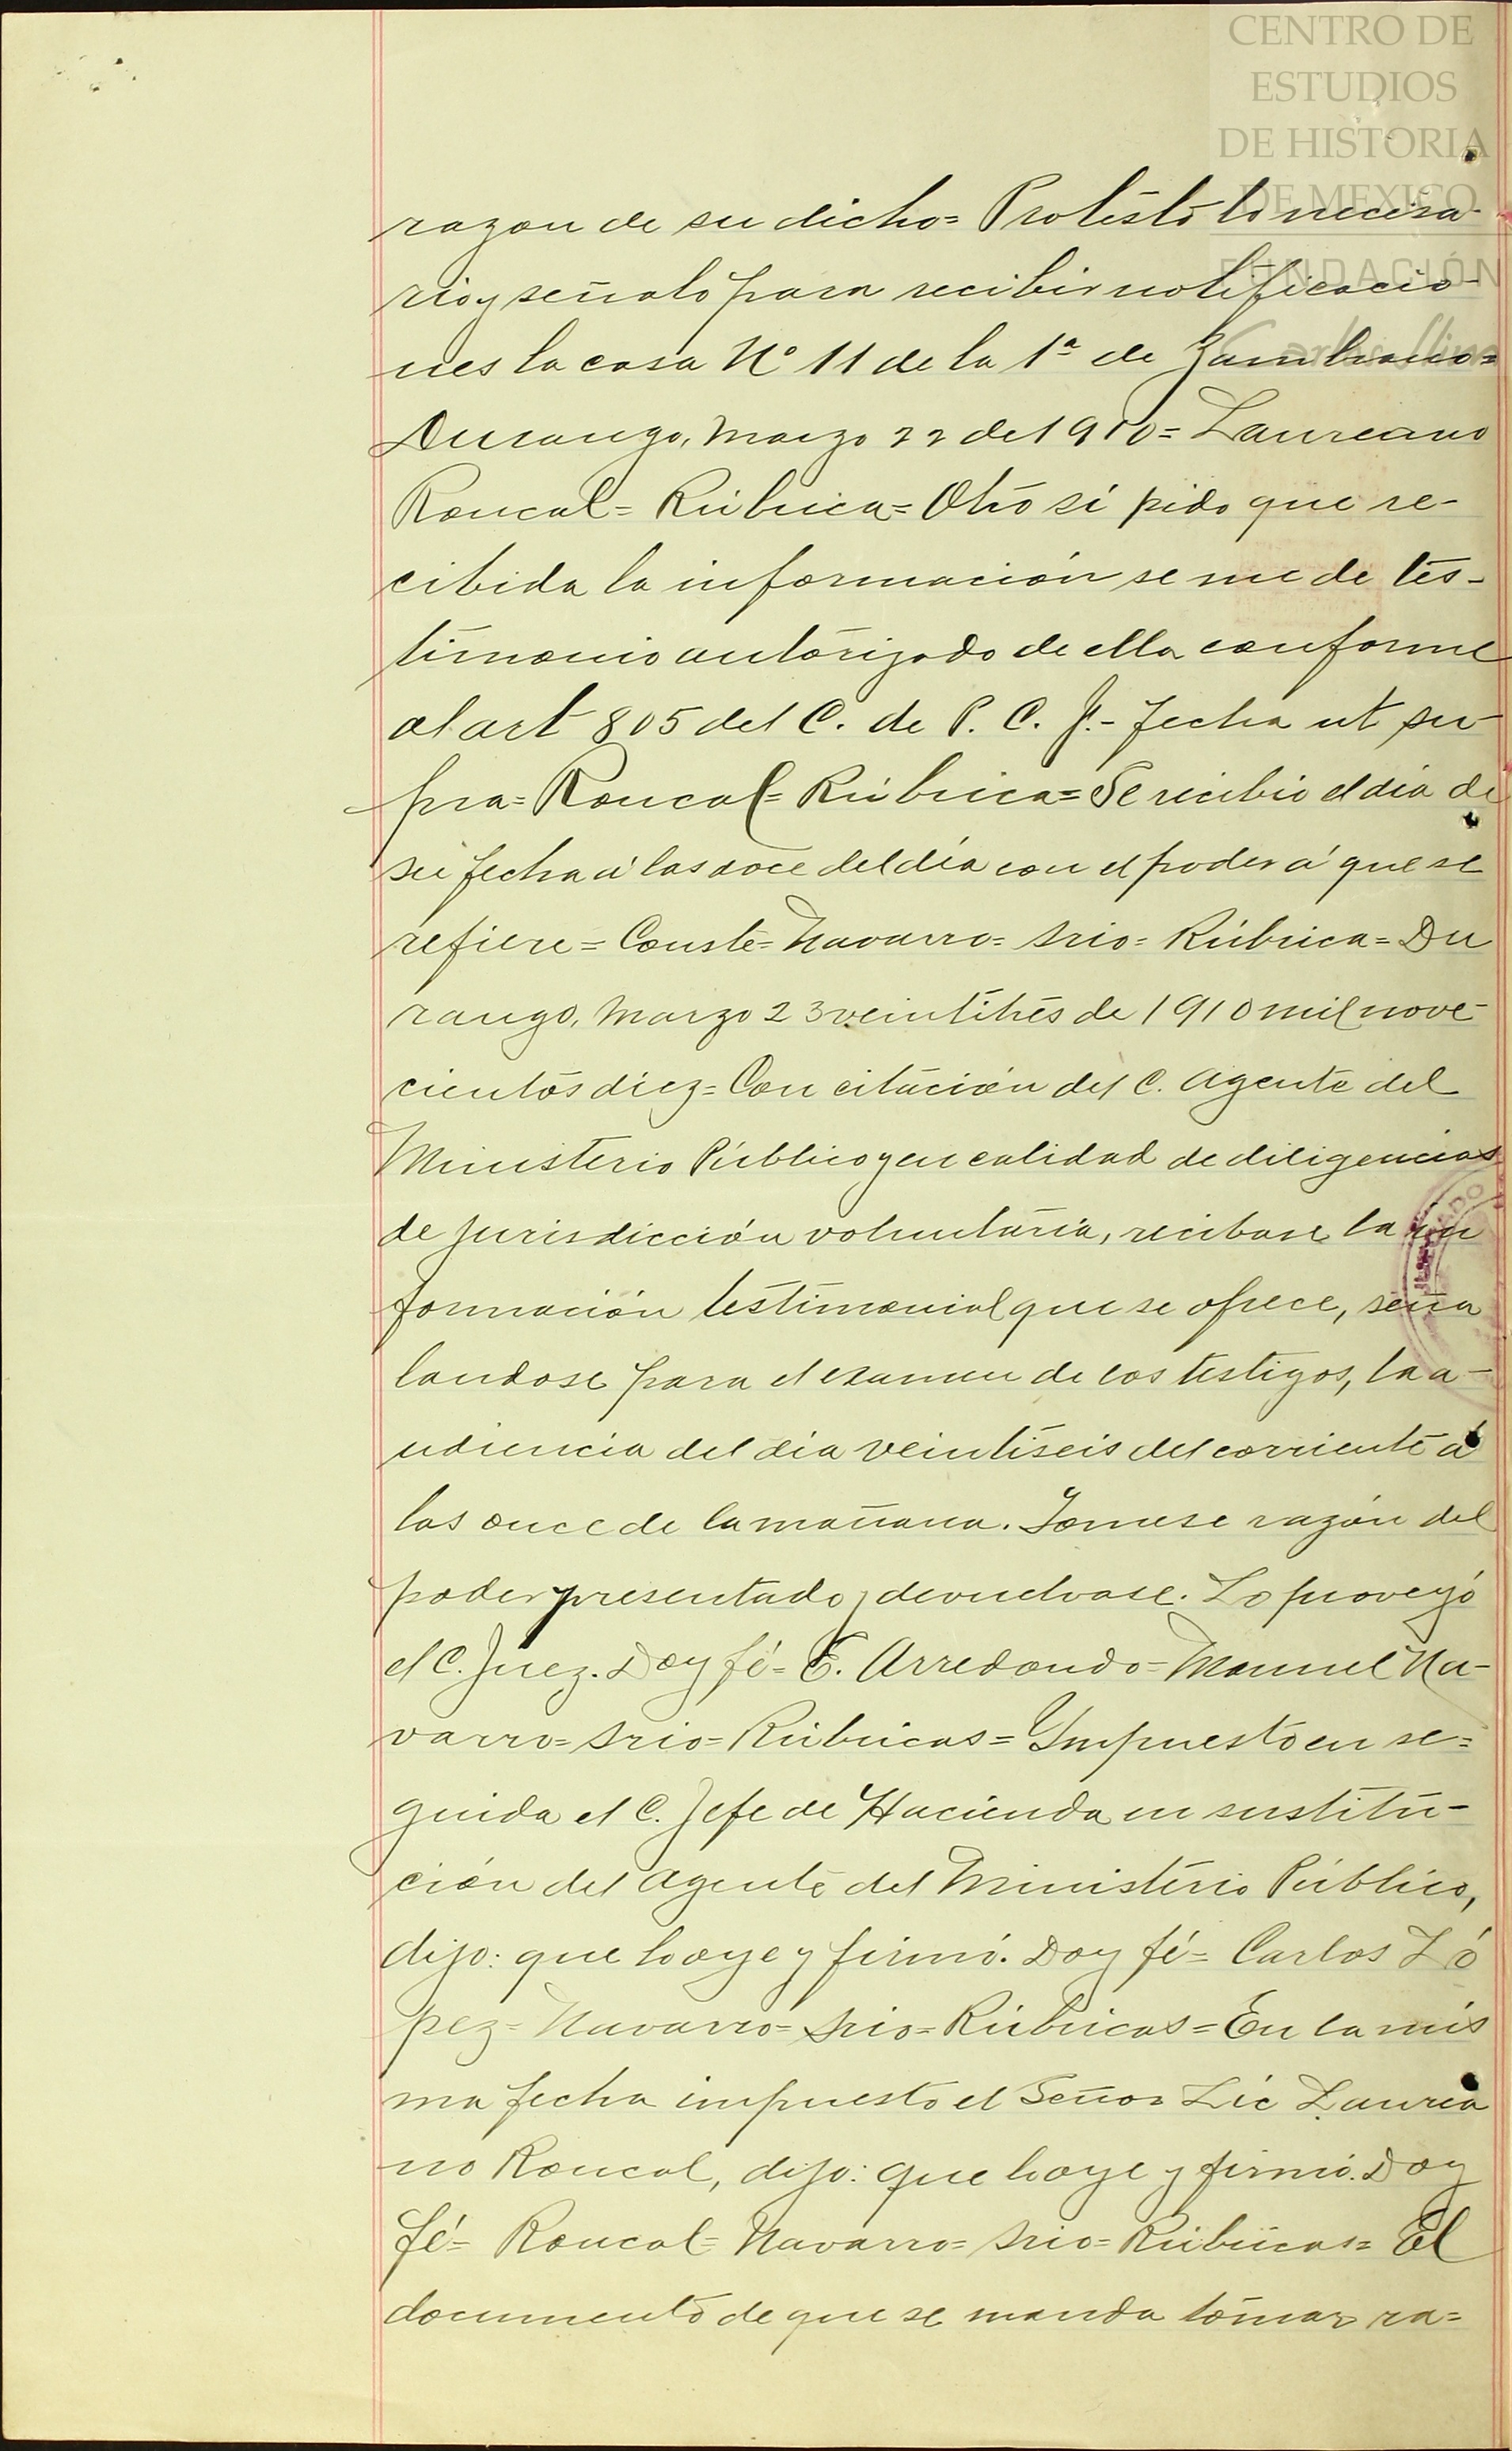 CENTRO DE
ESTUDIOS
DE HISTORIA
DE MEXICO
FUNDACIÓN
Carlos Slim
razon de su dicho= Protesto lo necesa-
rio y señalo para recibir notificacio-
nes la casa Nº 11 de la 1ª de Zambrano=
Durango, Marzo 22 de 1910= Laureano
Roncal= Rúbrica= Otro sí pido que re-
cibida la información se me de tes-
timonio autorizado de ella conforme
al art 805 del C. de P. C. F.- fecha ut su-
pra= Roncal= Rúbrica= Se recibio el dia de
su fecha á las doce del día con el poder á que se
refiere= Conste= Navarro= Srio= Rúbrica= Du
rango, Marzo 23 veintitrés de 1910 mil nove-
cientos diez= Con citación del C. Agente del
Ministerio Público y en calidad de diligencias
de jurisdicción voluntaria, recibase la in
formación testimonial que se ofrece, seña
landose para el examen de los testigos, la a-
udiencia del dia veintiseis del corriente á
las once de la mañana. Tomese razón del
poder presentado y devuelvase. Lo proveyó
el C. Juez. Doy fé= E. Arredondo= Manuel Na-
varro= Srio= Rúbricas= Ympuesto en se=
guida el C. Jefe de Hacienda en sustitu-
ción del Agente del Ministerio Público,
dijo: que lo oye y firmó. Doy fé= Carlos Ló
pez= Navarro= Srio= Rúbricas= En la mis
ma fecha impuesto el Señor Lic Laurea
no Roncal, dijo: que lo oye y firmó. Doy
fé= Roncal= Navarro= Srio= Rúbricas= El
documento de que se manda tomar ra=